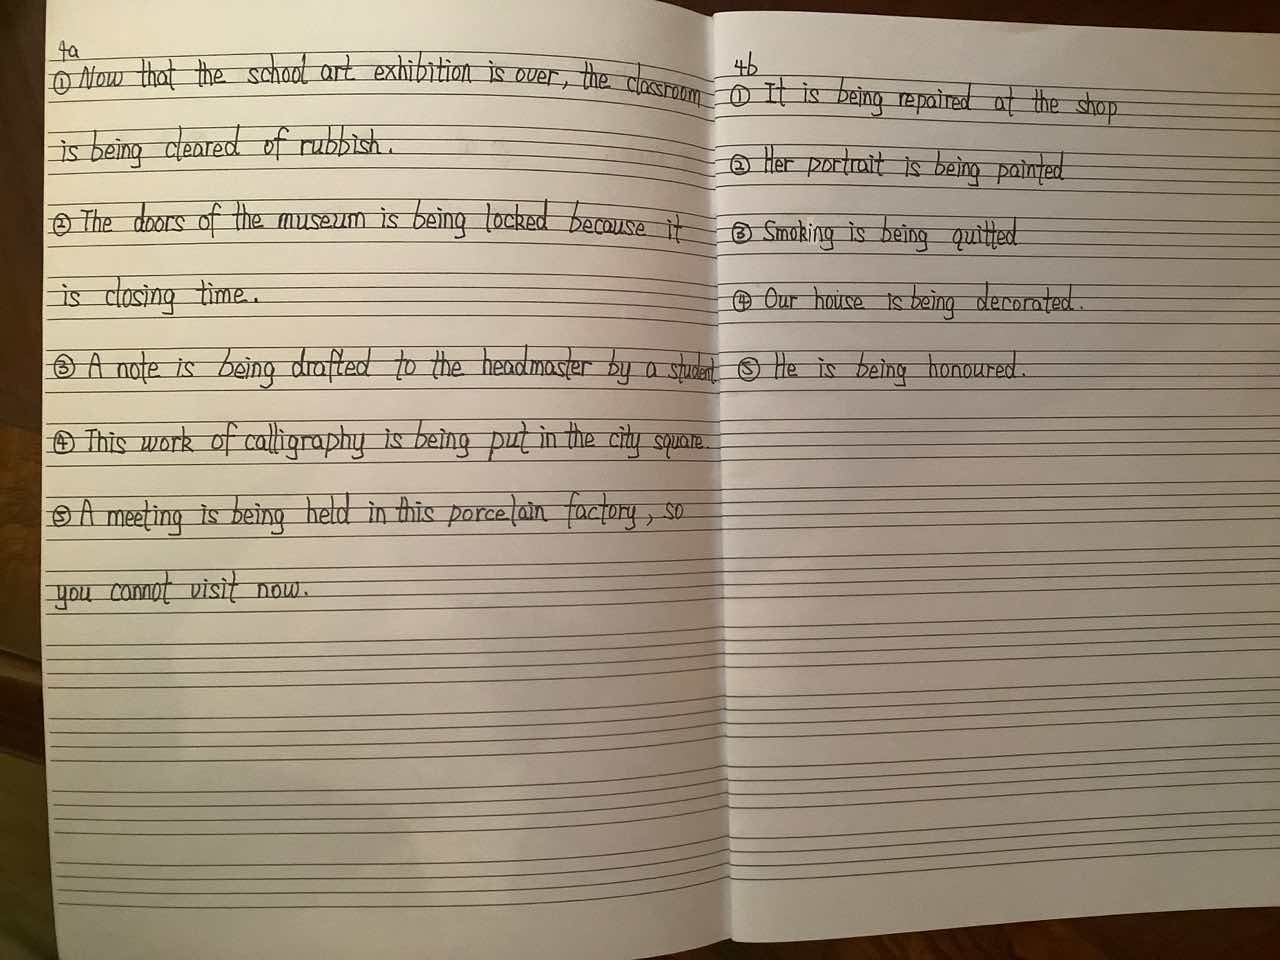 4a
① Now that the school art exhibition is over, the classroom
is being cleared of rubbish.
② The doors of the museum is being locked because it
is closing time.
③ A note is being drafted to the headmaster by a student
④ This work of calligraphy is being put in the city square.
⑤ A meeting is being held in this porcelain factory, so
you cannot visit now.
4b
① It is being repaired at the shop
② Her portrait is being painted
③ Smoking is being quitted
④ Our house is being decorated.
⑤ He is being honoured.